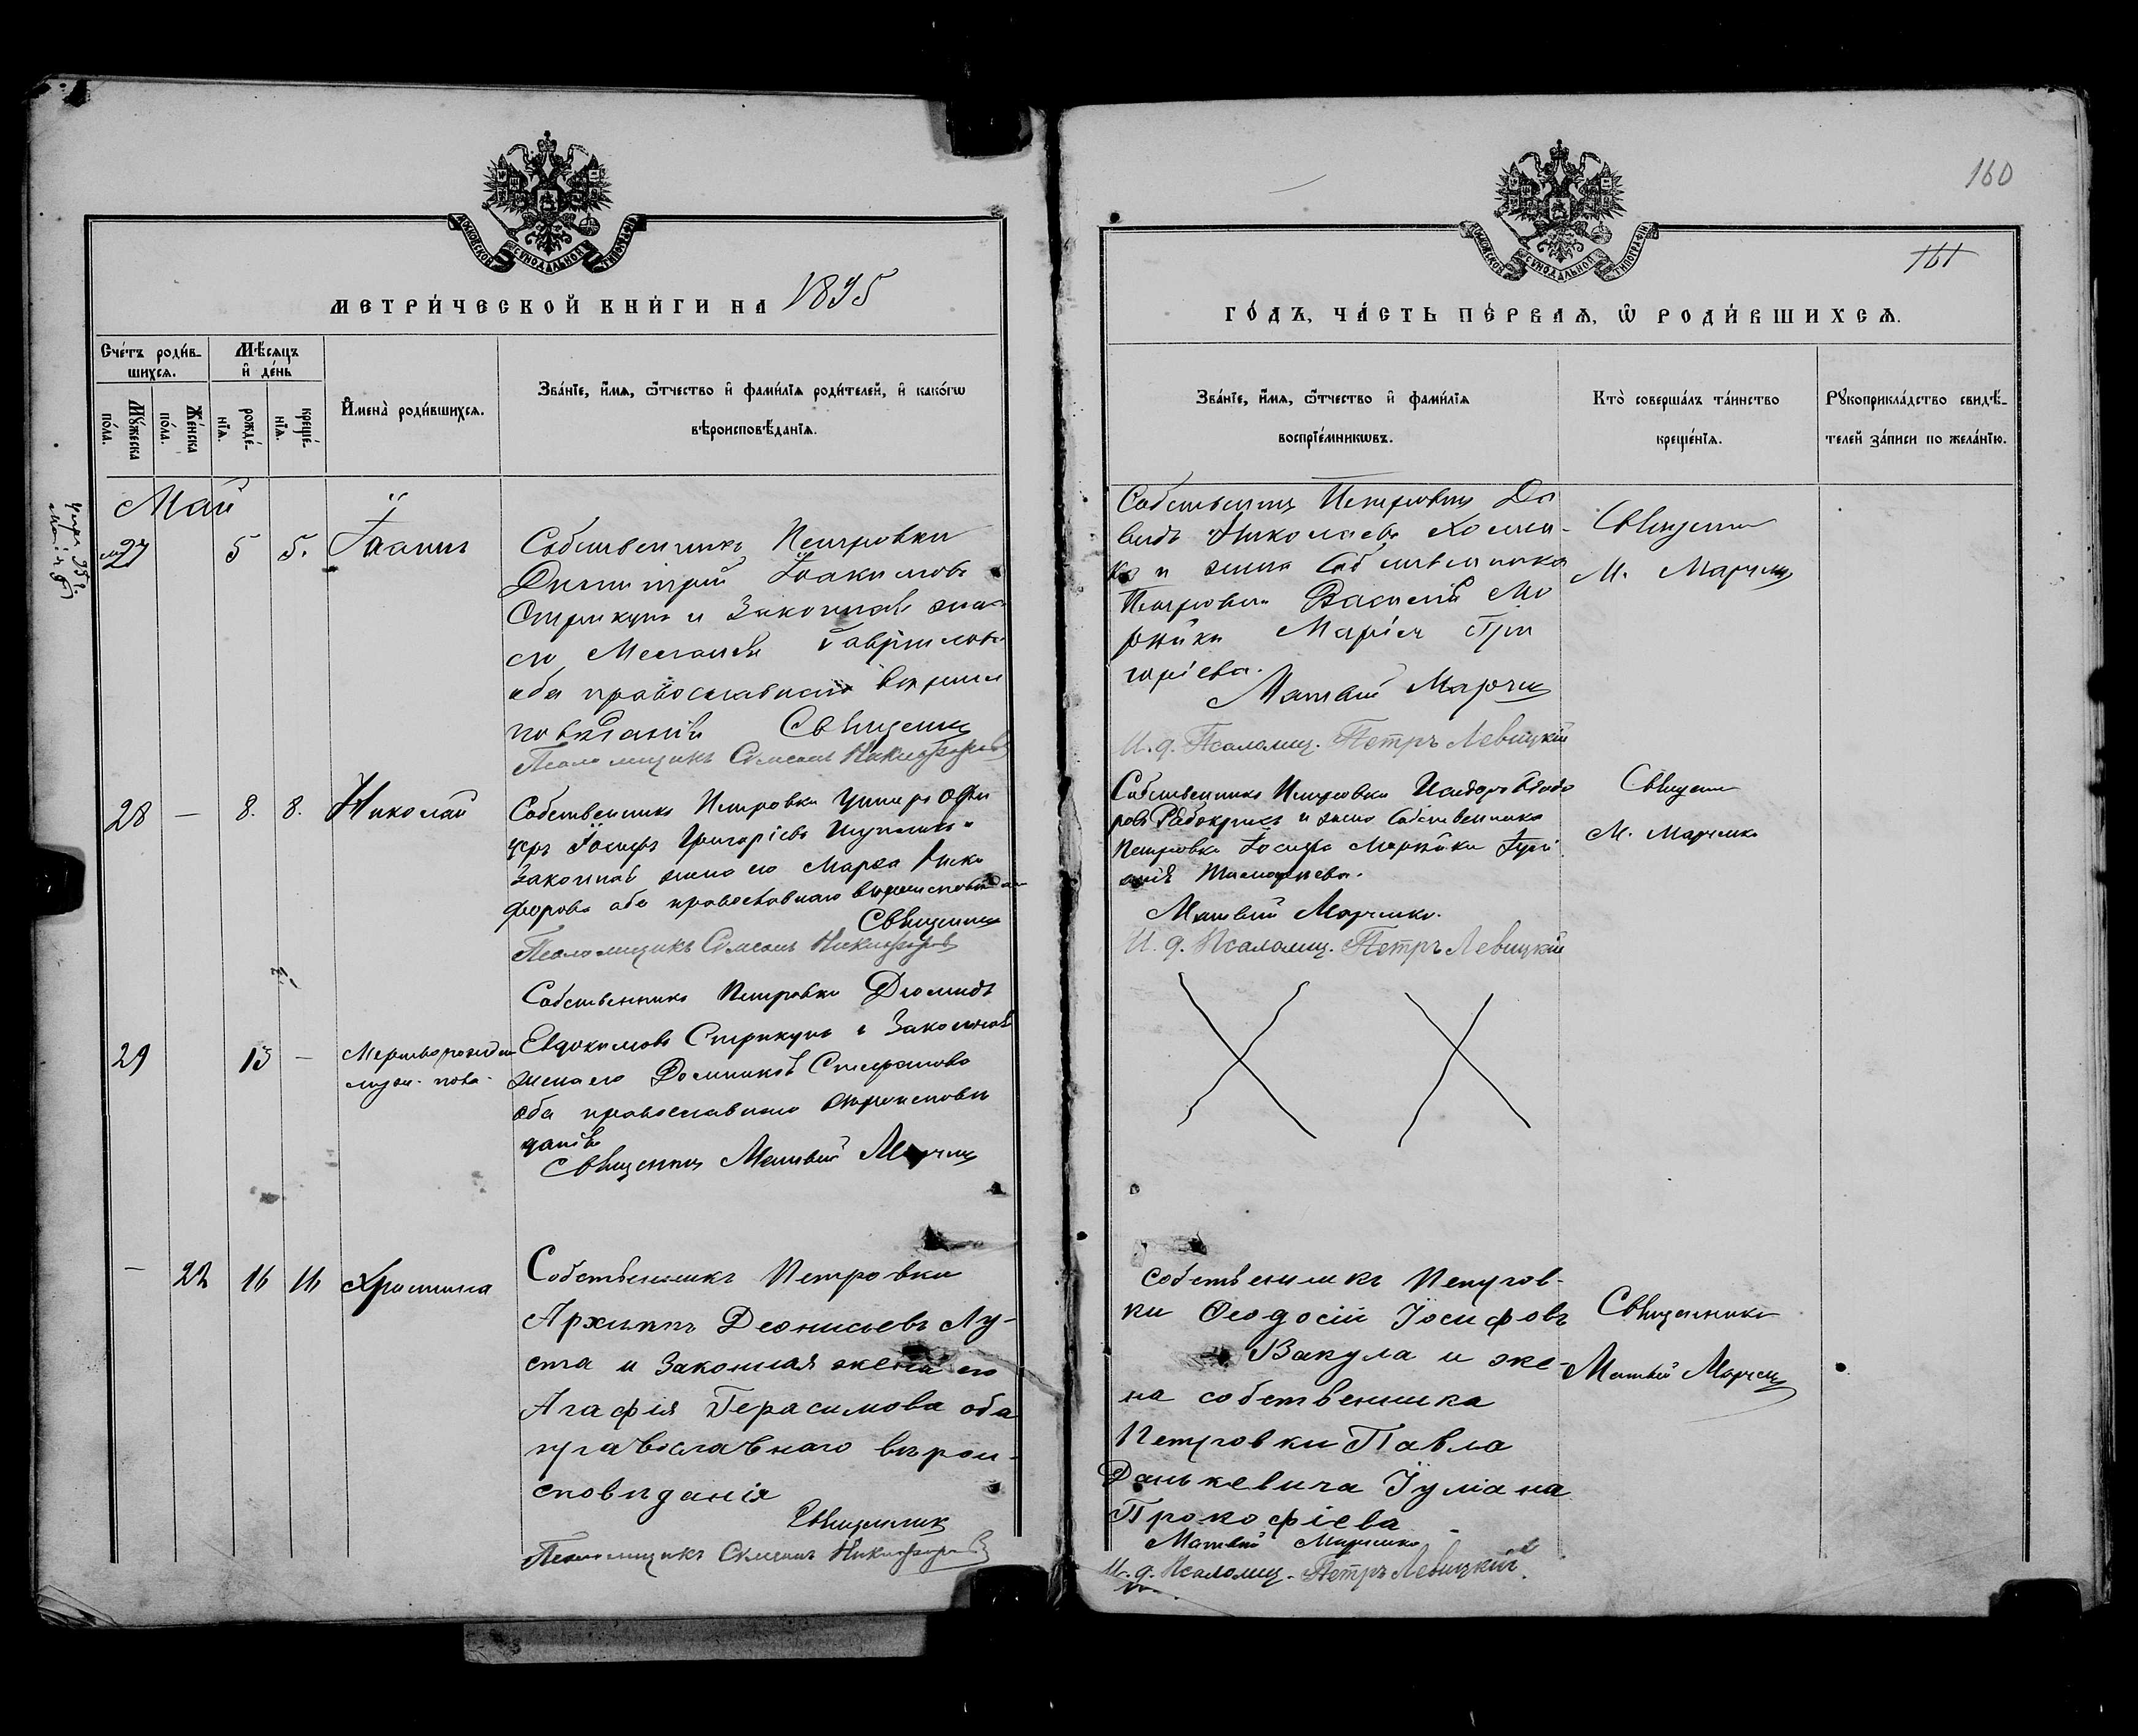 МОСКОВСКОЙ СѴНОДАЛЬНОЙ ТИПОГРАФІИ
МЕТРИ́ЧЕСКОЙ КНИ́ГИ НА 1895
Сче́тъ роди́в-
шихсѧ.
Мѣ́сѧцъ
и҆ де́нь
Мꙋ́жеска
по́ла.
Же́нска
по́ла.
рожде́-
нїѧ.
креще́-
нїѧ.
И҆мена̀ роди́вшихсѧ.
Зва́нїе, и҆́мѧ, ѻ҆́тчество и҆ фами́лїѧ роди́телей, и҆ како́гѡ
вѣроисповѣ́данїѧ.
Май
27 5 5. Іоаннъ
Собственникъ Петровки
Димитрій Іоакимовъ
Стрикунъ и Законная жена
его Меланія Гаврилова
оба православнаго вѣроис
повѣданія Священникъ
Псаломщикъ Симеонъ Никифоровъ
28 — 8. 8. Николай
Собственникъ Петровки Унтеръ Офи
церъ Іосифъ Григоріевъ
Законная жена его Марѳа Ники
форова оба православнаго вѣроисповѣда
Священникъ
Псаломщикъ Симеонъ Никифоровъ
Собственникъ Петровки Діомидъ
29 13 — Мертворожден
Евдокимовъ Стрикунъ и Законная
жена его Домникія Стефанова
оба православнаго вѣроисповѣ
данія
Священникъ Матвій Марченко
— 22 16 16 Христина
Собственникъ Петровки
Архиппъ Деонисьевъ Лу-
ста и Законная жена его
Агафія Герасимова оба
православнаго вѣрои-
сповѣданія
Священник
Псаломщикъ Симеонъ Никифоровъ
160
161
МОСКОВСКОЙ СѴНОДАЛЬНОЙ ТИПОГРАФІИ
ГО́ДЪ, ЧА́СТЬ ПЕ́РВАѦ, Ѡ҆ РОДИ́ВШИХСѦ.
Зва́нїе, и҆́мѧ, ѻ҆́тчество и҆ фами́лїѧ
воспрїе́мникѡвъ.
Кто̀ соверша́лъ та́инство
креще́нїѧ.
Рꙋкоприкла́дство свидѣ́-
телей за́писи по жела́нїю.
Собственникъ Петровки Да
видъ Николаевъ Хомен-
ко и жена Собственника
Петровки Василія Мо
Марія Гри
горіева.
Матвій Марченко
И. д. Псаломщ. Петръ Левицкій
Священникъ
М. Марченко
Собственникъ Петровки Исидоръ Ѳеодо
ровъ Рябокринъ и жена Собственника
Петровки Іосифа
Матвій Марченко.
И. д. Псаломщ. Петръ Левицкій
Священникъ
М. Марченко
Собственникъ Петров-
ки Ѳеодосій Іосифовъ
Вакула и же-
на собственника
Петровки Павла
Данькевича Іуліана
Прокофіева
Матвій Марченко
И. д. Псаломщ. Петръ Левицкій.
Священникъ
Матвій Марченко